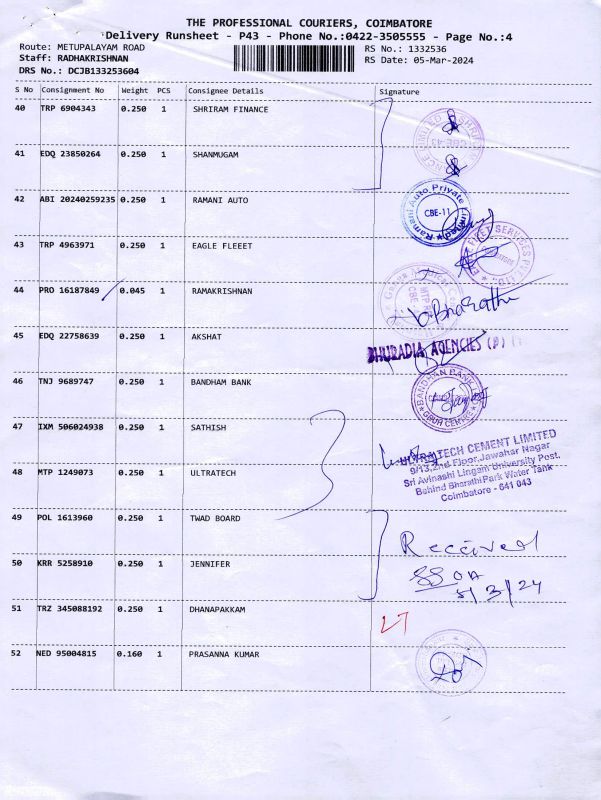 THE PROFESSIONAL COURIERS, COIMBATORE
Delivery Runsheet - P43 - Phone No.:0422-3505555 - Page No.:4
Route: METUPALAYAM ROAD RS No.: 1332536
Staff: RADHAKRISHNAN RS Date: 05-Mar-2024
DRS No.: DCJB133253604
S No Consignment No Weight PCS Consignee Details Signature
40 TRP 6904343 0.250 1 SHRIRAM FINANCE
41 EDQ 23850264 0.250 1 SHANMUGAM
42 ABI 20240259235 0.250 1 RAMANI AUTO
Ramani Auto Private Limited
CBE-11
43 TRP 4963971 0.250 1 EAGLE FLEEET
44 PRO 16187849 0.045 1 RAMAKRISHNAN
b. Bharathi
45 EDQ 22758639 0.250 1 AKSHAT
BHURADIA AGENCIES (P)
46 TNJ 9689747 0.250 1 BANDHAM BANK
BANDHAN BANK
47 IXM 506024938 0.250 1 SATHISH
48 MTP 1249073 0.250 1 ULTRATECH
ULTRATECH CEMENT LIMITED
9/13,2nd Floor,Jawahar Nagar
Sri Avinashi Lingam University Post,
Behind BharathiPark Water Tank
Coimbatore - 641 043
49 POL 1613960 0.250 1 TWAD BOARD
Received
50 KRR 5258910 0.250 1 JENNIFER
5/3/24
51 TRZ 345088192 0.250 1 DHANAPAKKAM
52 NED 95004815 0.160 1 PRASANNA KUMAR